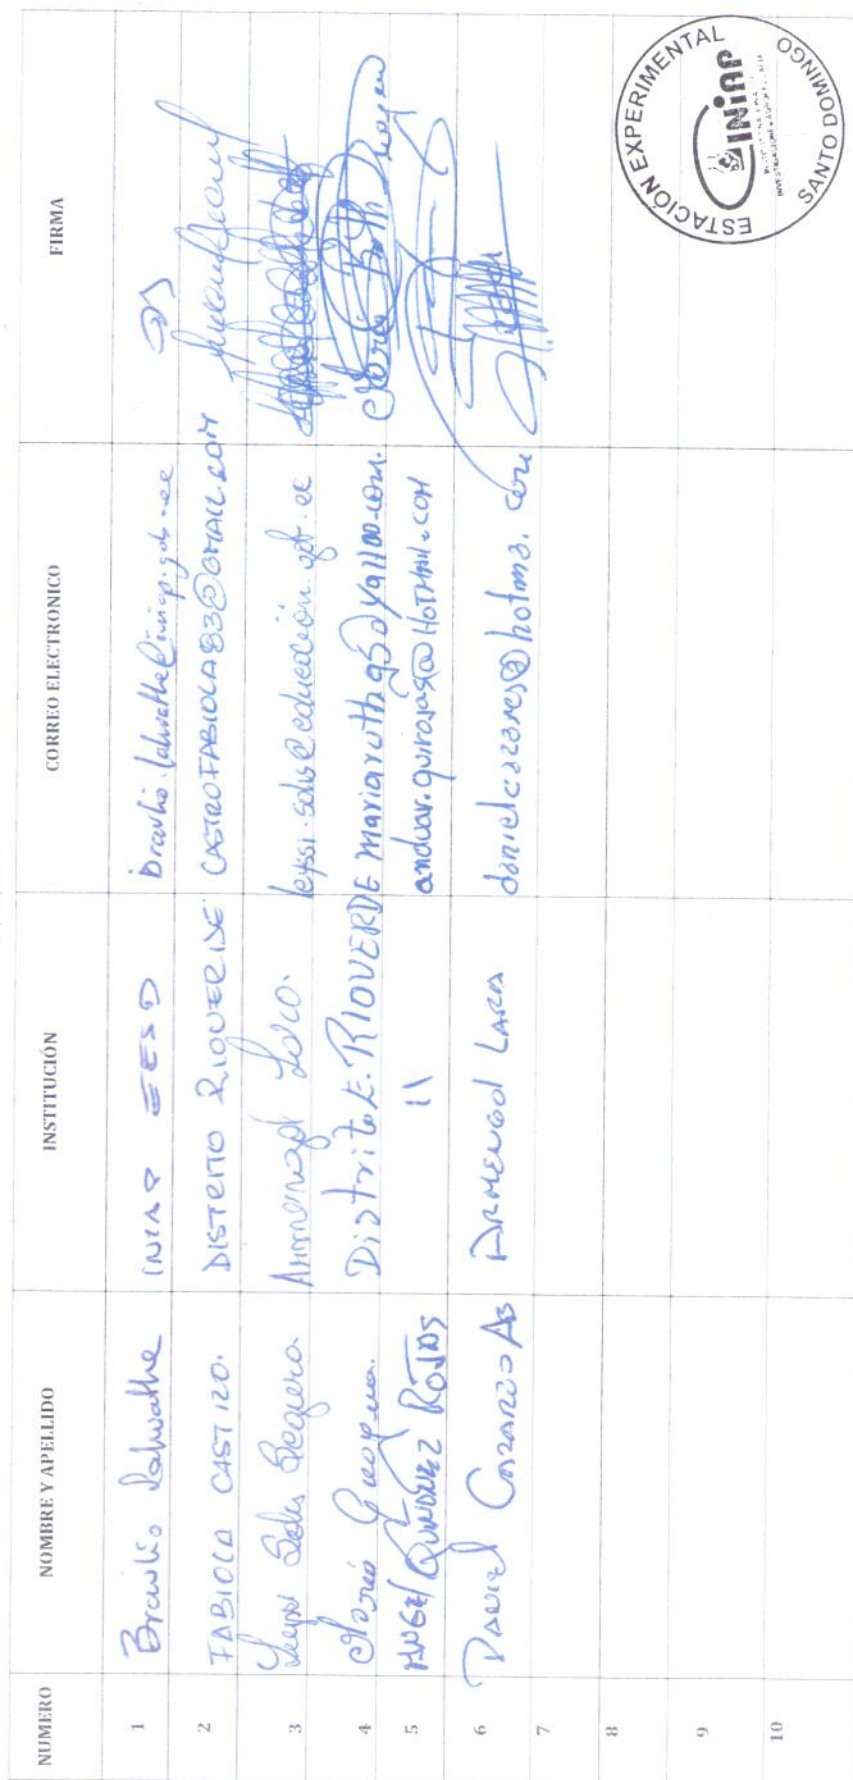 NUMERO NOMBRE Y APELLIDO INSTITUCIÓN CORREO ELECTRONICO FIRMA
1 Braulio Lahuathe INIAP EESD braulio.lahuathe@iniap.gob.ec
2 FABIOLA CASTRO. DISTRITO RIOVERDE CASTROFABIOLA83@GMAIL.COM
3 Leyssi Solis leyssi.solis@educación.gob.ec
4 María Distrito E. RIOVERDE mariaruthg5@yahoo.com.
5 ANGEL QUIÑONEZ ROJAS 11 anduar.quirojas@HOTMAIL.COM
6 DANIEL ARMENGOL LARA
7
8
9
10
ESTACIÓN EXPERIMENTAL
INIAP
SANTO DOMINGO